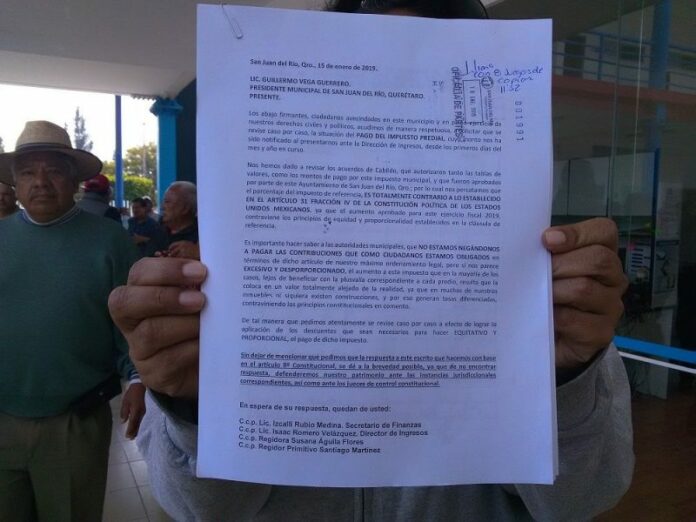 San Juan del Río, Qro., 15 de enero de 2019.
LIC. GUILLERMO VEGA GUERRERO.
PRESIDENTE MUNICIPAL DE SAN JUAN DEL RÍO, QUERÉTARO.
PRESENTE.
OFICIALÍA DE PARTES
001991
Los abajo firmantes, ciudadanos avecindados en este municipio y en
nuestros derechos civiles y políticos, acudimos de manera respetuosa, solicitar que se
revise caso por caso, la situación del PAGO DEL IMPUESTO PREDIAL, cuyo monto nos ha
sido notificado al presentarnos ante la Dirección de Ingresos, desde los primeros días del
mes y año en curso.
Nos hemos dado a revisar los acuerdos de Cabildo, que autorizaron tanto las tablas de
valores, como los montos de pago por este impuesto municipal, y que fueron aprobados
por parte de este Ayuntamiento de San Juan del Río, Qro; por lo cual nos percatamos que
el porcentaje del impuesto de referencia, ES TOTALMENTE CONTRARIO A LO ESTABLECIDO
EN EL ARTÍCULO 31 FRACCIÓN IV DE LA CONSTITUCIÓN POLÍTICA DE LOS ESTADOS
UNIDOS MEXICANOS, ya que el aumento aprobado para este ejercicio fiscal 2019,
contraviene los principios de equidad y proporcionalidad establecidos en la cláusula de
referencia.
Es importante hacer saber a las autoridades municipales, que NO ESTAMOS NEGÁNDONOS
A PAGAR LAS CONTRIBUCIONES QUE COMO CIUDADANOS ESTAMOS OBLIGADOS en
términos de dicho artículo de nuestro máximo ordenamiento legal, pero si nos parece
EXCESIVO Y DESPORPORCIONADO, el aumento a este impuesto que en la mayoría de los
casos, lejos de beneficiar con la plusvalía correspondiente a cada predio, resulta que lo
coloca en un valor totalmente alejado de la realidad, ya que en muchos de nuestros
inmuebles ni siquiera existen construcciones, y por eso generan tasas diferenciadas,
contraviniendo los principios constitucionales en comento.
De tal manera que pedimos atentamente se revise caso por caso a efecto de lograr la
aplicación de los descuentos que sean necesarios para hacer EQUITATIVO Y
PROPORCIONAL, el pago de dicho impuesto.
Sin dejar de mencionar que pedimos que la respuesta a este escrito que hacemos con base
en el artículo 8º Constitucional, se dé a la brevedad posible, ya que de no encontrar
respuesta, defenderemos nuestro patrimonio ante las instancias jurisdiccionales
correspondientes, así como ante los jueces de control constitucional.
En espera de su respuesta, quedan de usted:
C.c.p. Lic. Izcalli Rubio Medina. Secretario de Finanzas
C.c.p. Lic. Isaac Romero Velázquez, Director de Ingresos
C.c.p. Regidora Susana Águila Flores
C.c.p. Regidor Primitivo Santiago Martínez